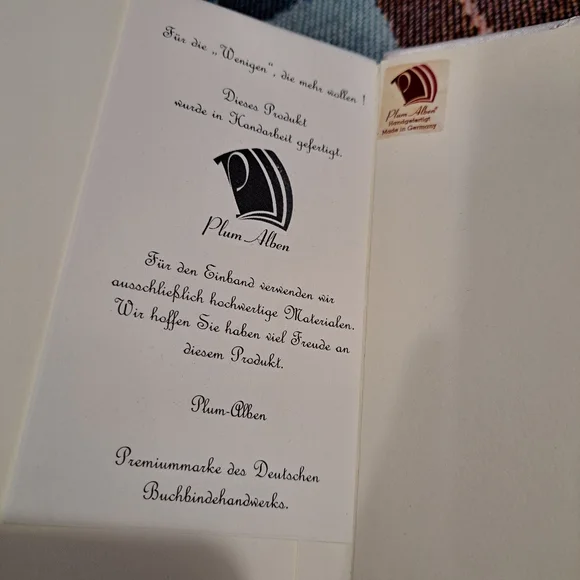 Für die „Wenigen“, die mehr wollen !
Dieses Produkt
wurde in Handarbeit gefertigt.
P
Plum Alben
Für den Einband verwenden wir
ausschließlich hochwertige Materialen.
Wir hoffen Sie haben viel Freude an
diesem Produkt.
Plum-Alben
Premiummarke des Deutschen
Buchbindehandwerks.
P
Plum Alben
Handgefertigt
Made in Germany